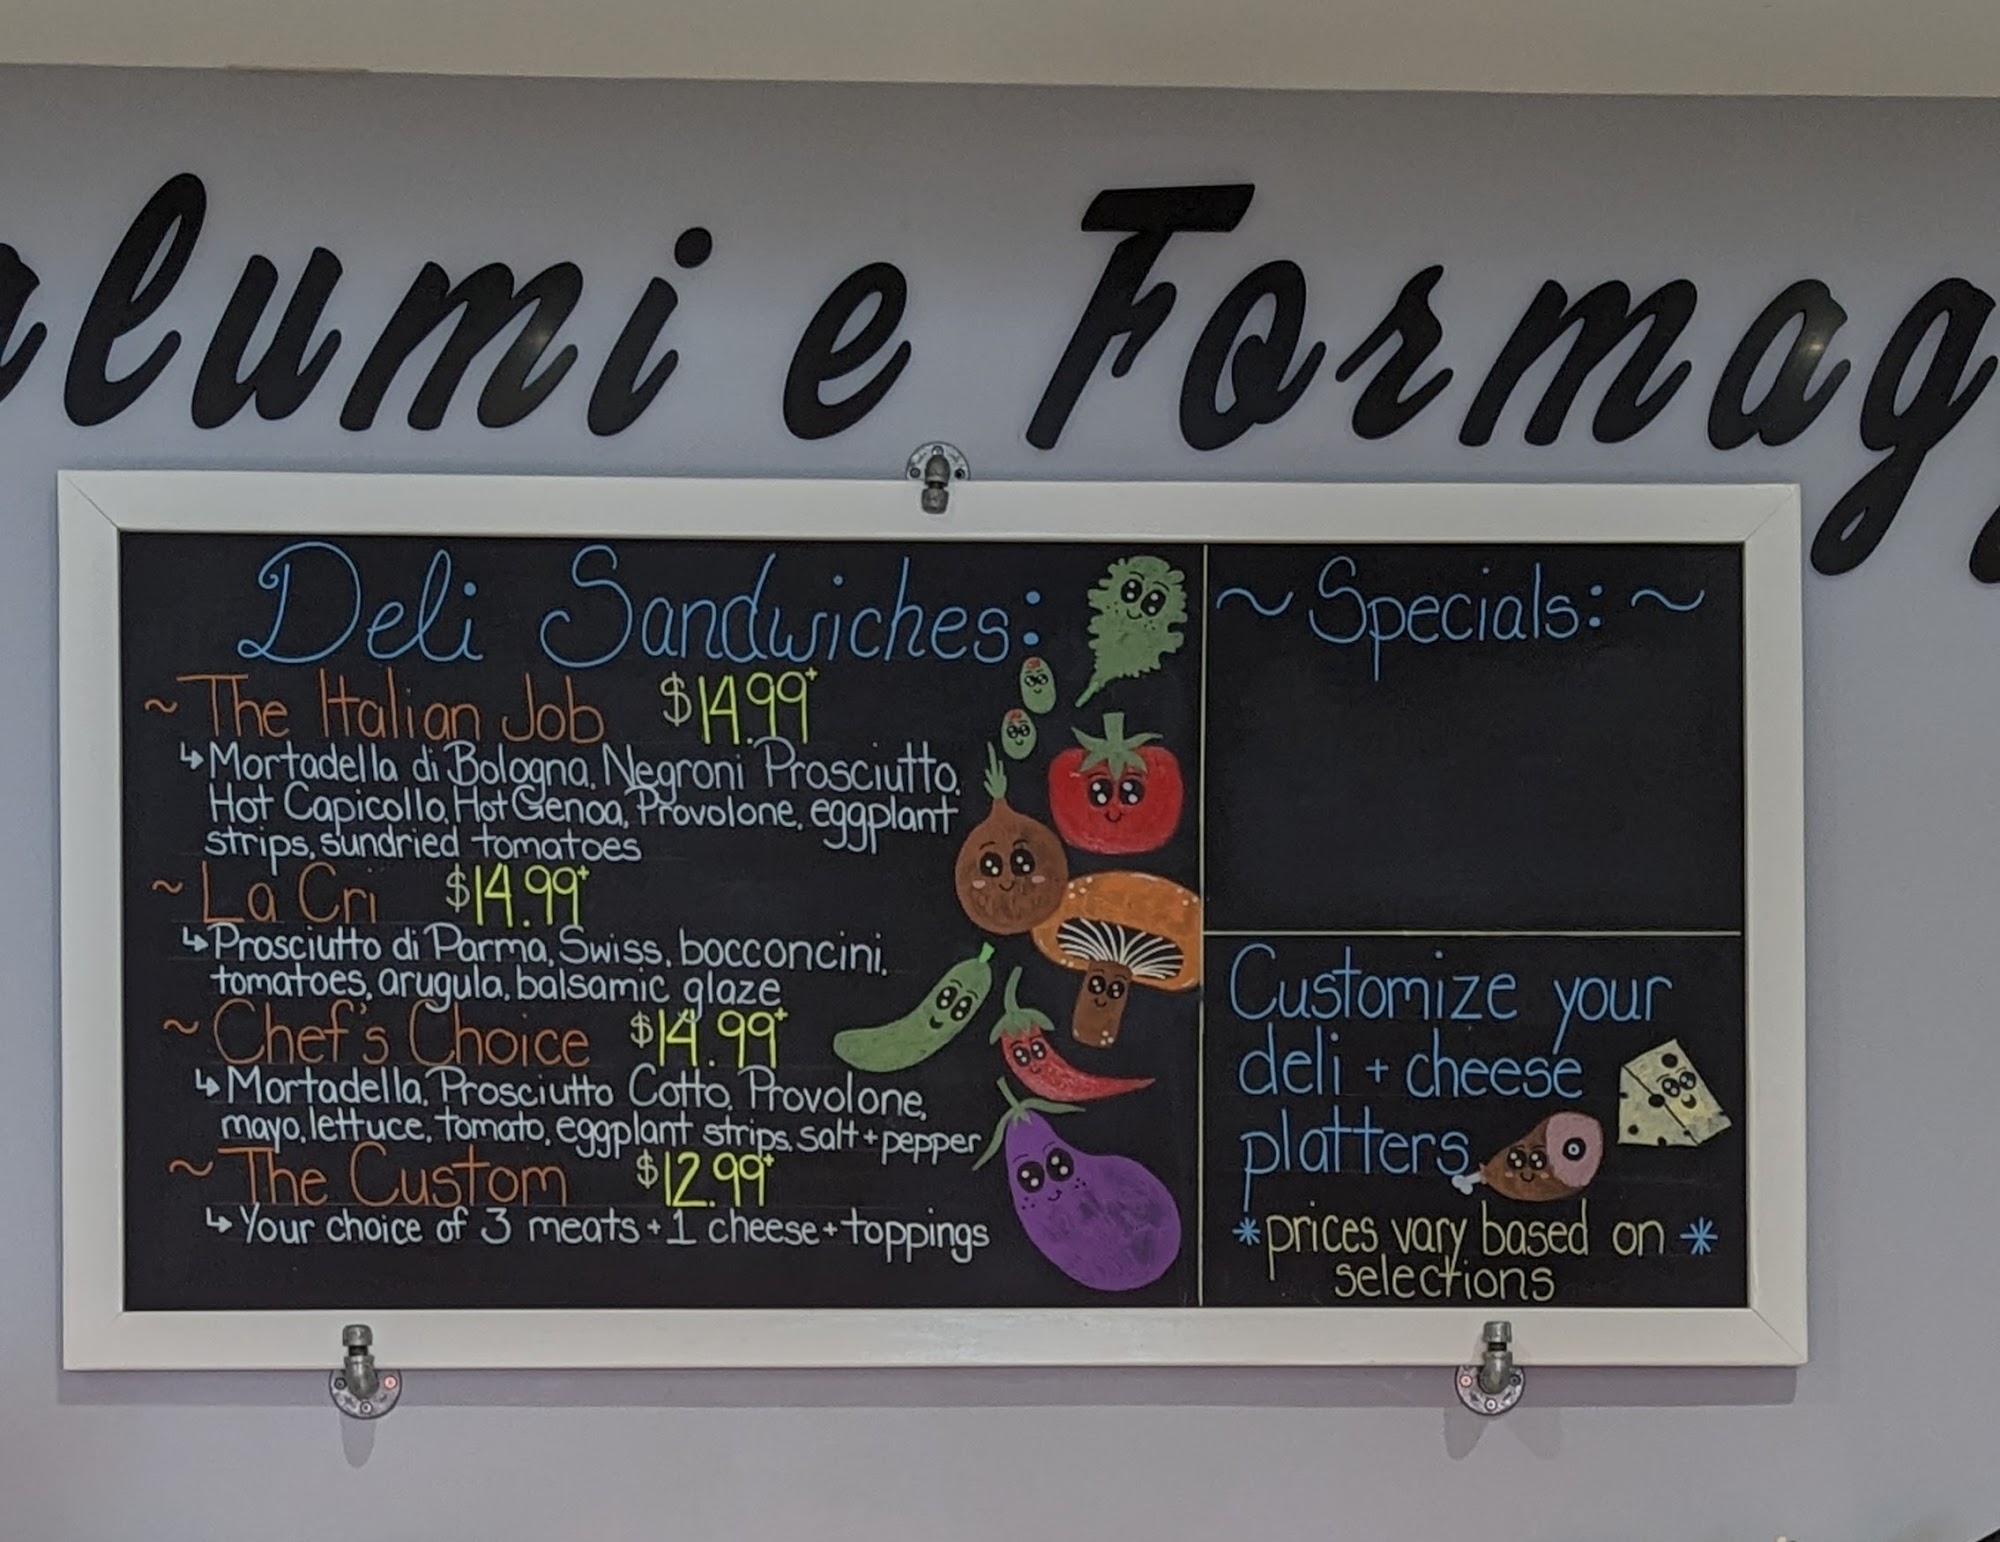 alumi e Formag
Deli Sandwiches:
~ The Italian Job $14.99+
↳ Mortadella di Bologna, Negroni Prosciutto,
Hot Capicollo, Hot Genoa, Provolone, eggplant
strips, sundried tomatoes
~ La Cri $14.99+
↳ Prosciutto di Parma, Swiss, bocconcini,
tomatoes, arugula, balsamic glaze
~ Chef's Choice $14.99+
↳ Mortadella, Prosciutto Cotto, Provolone,
mayo, lettuce, tomato, eggplant strips, salt + pepper
~ The Custom $12.99+
↳ Your choice of 3 meats + 1 cheese + toppings
~ Specials: ~
Customize your
deli + cheese
platters
* prices vary based on *
selections